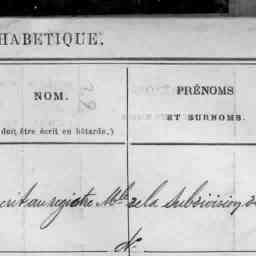 HABETIQUE.
NOM. PRÉNOMS
ET SURNOMS.
doit être écrit en bâtarde.)
crit au registre Mle de la subdivision d
N°